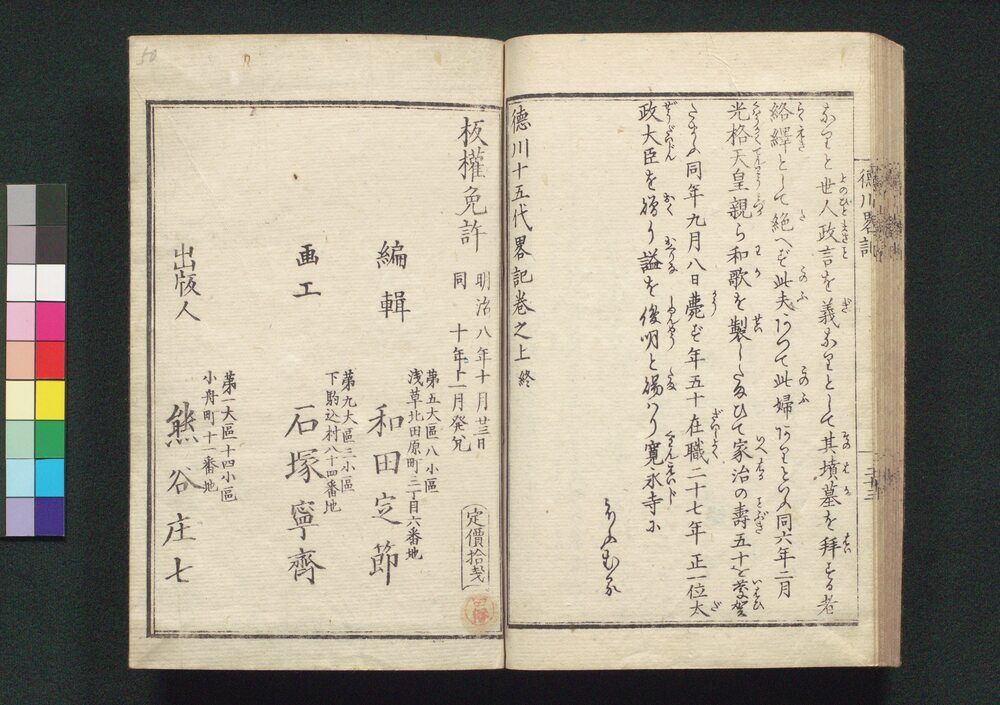 徳川畧記
三十三
ありと世人政言を義ありとして其墳墓を拝する者
絡繹として絶へず此夫ありて此婦ありといふ同六年二月
光格天皇親ら和歌を製したまひて家治の壽五十を慶賀
たまふ同年九月八日薨ず年五十在職二十七年正一位太
政大臣を贈り謚を俊明と賜はり寛永寺に
はうむる
德川十五代畧記巻之上終
板權免許
明治八年十月廿三日
同十年十一月発兌
定價拾戔
編輯
第五大區八小區
浅草北田原町三丁目六番地
和田定節
画工
第九大區三小區
下駒込村八十四番地
石塚寧齊
出版人
第一大區十四小區
小舟町十一番地
熊谷庄七
50